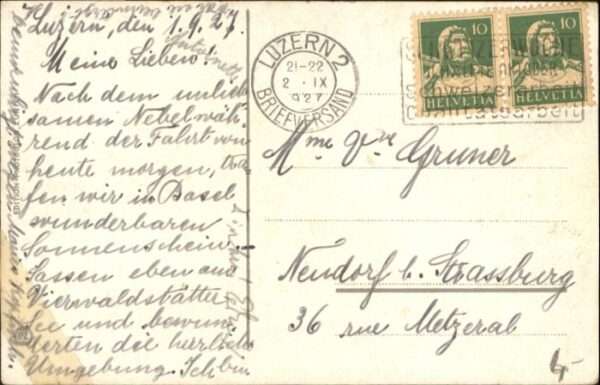 Luzern, den 1.9.27.
Meine Lieben!
Nach dem unlieb-
samen Nebel wäh-
rend der Fahrt von
heute morgen, tra-
fen wir in Basel
wunderbaren
Sonnenschein.
Sassen eben am
Vierwaldstätter
See und bewun-
derten die herrliche
Umgebung. Ich bin
LUZERN 2
21-22
2. IX
1927
BRIEFVERSAND
10
HELVETIA
10
HELVETIA
Mme Vve Gruner
Neudorf b. Strassburg
36 rue Metzeral
4.-